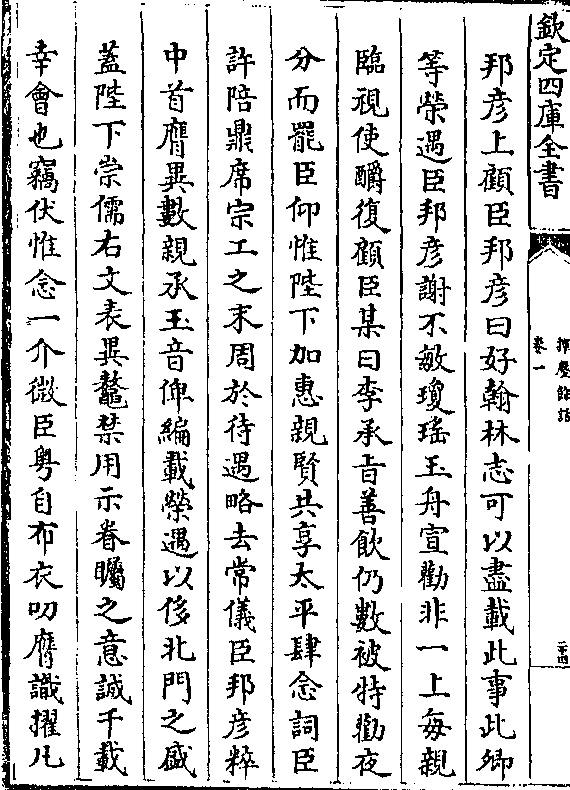 欽定四庫全書
揮麈餘話
卷一
二十四
邦彦上顧臣邦彦曰好翰林志可以盡載此事此卿
等榮遇臣邦彦謝不敏瓊瑶玉舟宣勸非一上每親
臨視使釂復顧臣某曰李承㫖善飲仍數被特勸夜
分而罷臣仰惟陛下加惠親賢共享太平肆念詞臣
許陪鼎席宗工之末周於待遇略去常儀臣邦彦粹
中首膺異數親承玉音俾編載榮遇以侈北門之盛
蓋陛下崇儒右文表異鼇禁用示眷矚之意誠千載
幸會也竊伏惟念一介微臣粤自布衣叨膺識擢凡